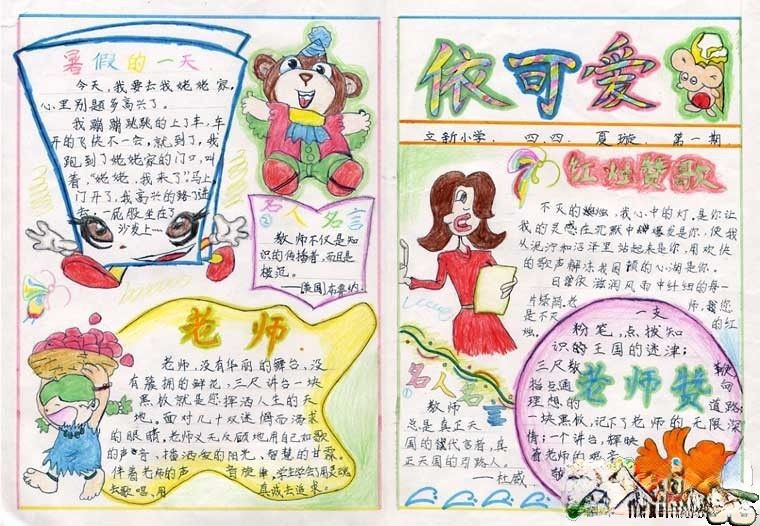 暑假的一天
今天,我要去我姥姥家,
心里别题多高兴了。
我蹦蹦跳跳的上了车,车
开的飞快不一会,就到了,我
跑到了姥姥家的门口,叫
着,“姥姥,我来了”马上,
门开了,我高兴的
去,一屁股坐在了
沙发上……
名人名言
②
教师不仅是知
识的传播者,而且是
模范。
——[美国]布鲁纳
老师
老师,没有华丽的舞台,没
有簇拥的鲜花,三尺讲台一块
黑板就是您挥洒人生的天
地。面对几十双迷惘而渴求
的眼睛,老师义无反顾地用自己如歌
的声音,播洒爱的阳光、智慧的甘霖。
伴着老师的声音旋律,学生学会了用灵魂
去歌唱、用真诚去追求。
依可爱
立新小学、四、四、夏璇、第一期
红烛赞歌
不灭的烛,我心中的灯。是你让
我的灵感在沉默中爆发是你,使我
从泥泞和沼泽里站起来是你,用欢快
的歌声解法我困顿的心湖是你。
日常依滋润风雨中纤细的每一
片绿洲。老师,我您
是不灭的红
烛。
名人名言
①
教师
总是真正天
国的代言者,真
正天国的引路人。
——杜威
老师赞
一支
粉笔,点拨知
识的王国的迷津;
三尺教鞭
指点通向
理想的道路;
一块黑板,记下了老师的无限深
情;一个讲台,辉映
着老师的艰辛